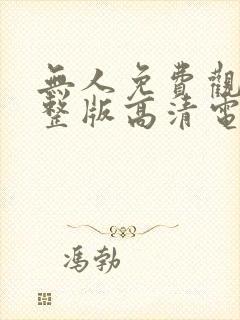 無人免費觀
整版高清電
馮勃